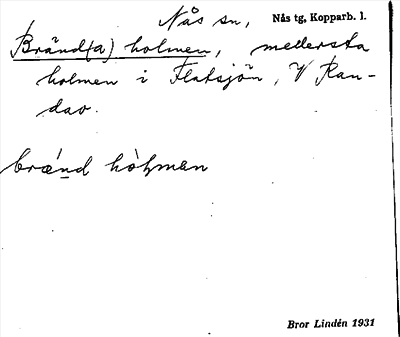 Nås sn, Nås tg, Kopparb. l.
Bränd(a) holmen, mellersta
holmen i Flatsjön, V Ran-
dao.
brænd hòłmen
Bror Lindén 1931